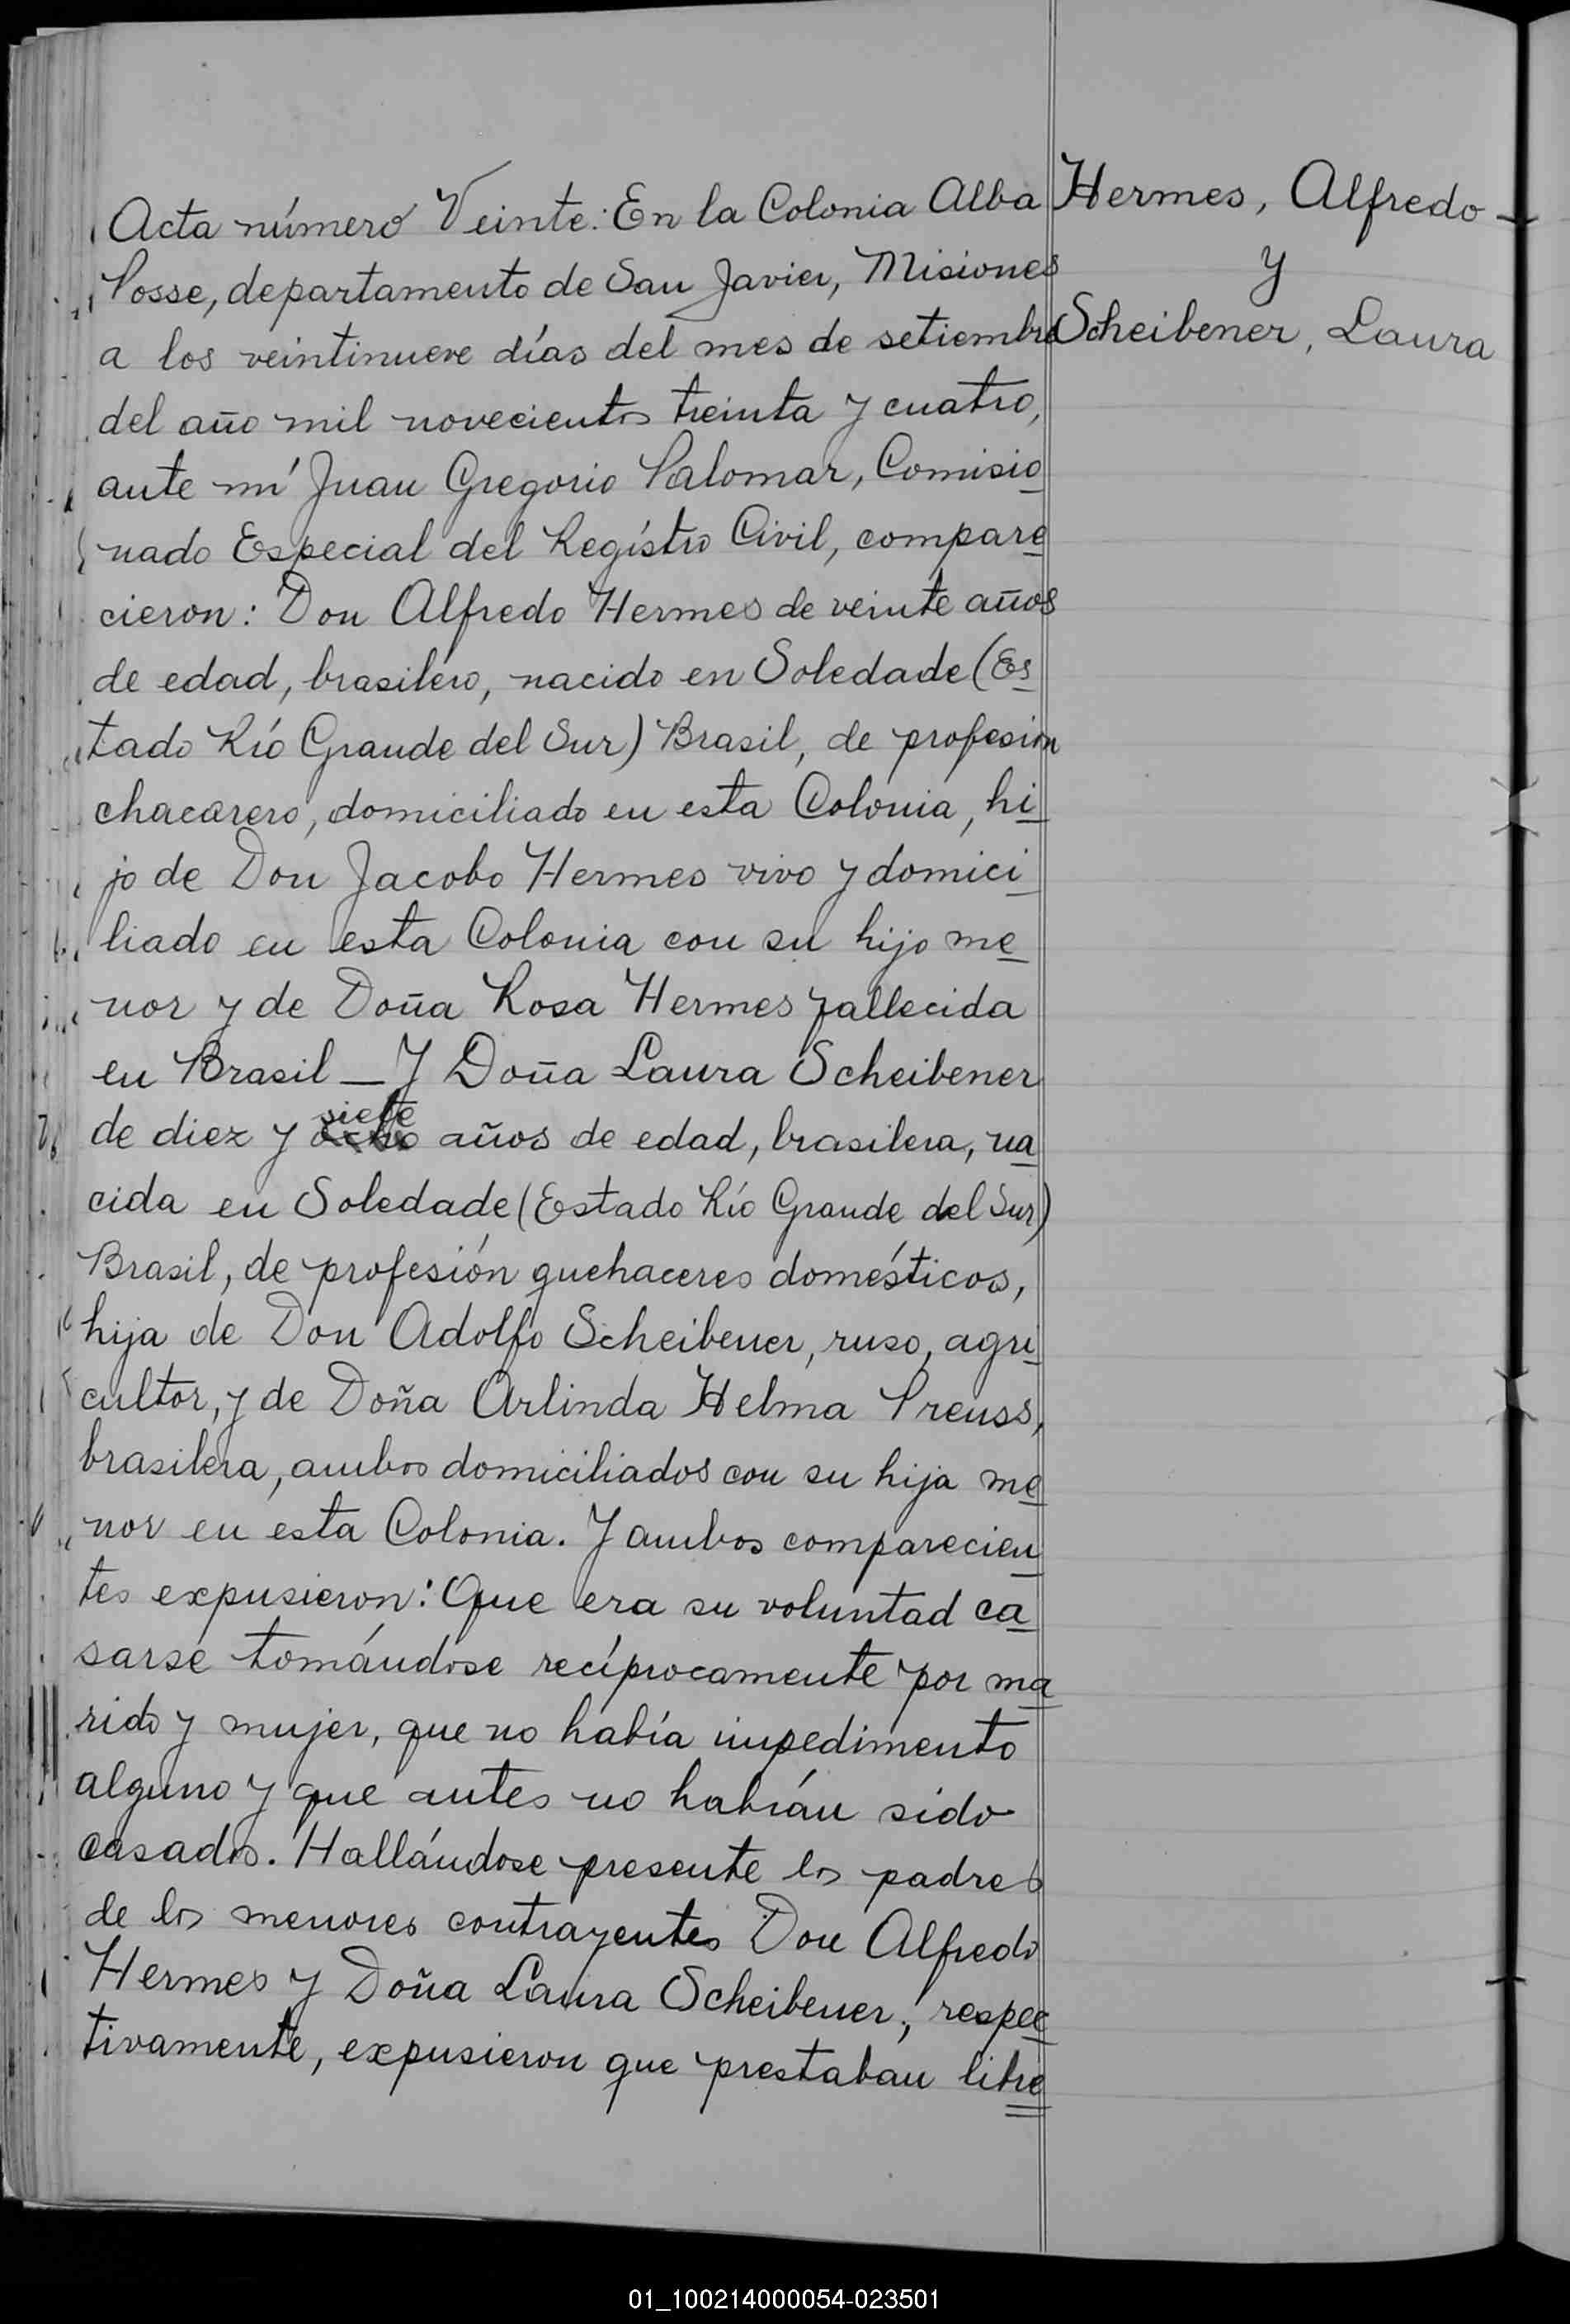 Acta número Veinte: En la Colonia Alba
Posse, departamento de San Javier, Misiones
a los veintinueve días del mes de setiembre
del año mil novecientos treinta y cuatro,
ante mí Juan Gregorio Palomar, Comisio
nado Especial del Regístro Civil, compare
cieron: Don Alfredo Hermes de veinte años
de edad, brasilero, nacido en Soledade (Es
tado Río Grande del Sur) Brasil, de profesión
chacarero, domiciliado en esta Colonia, hi
jo de Don Jacobo Hermes vivo y domici
liado en esta Colonia con su hijo me
nor y de Doña Rosa Hermes fallecida
en Brasil — Y Doña Laura Scheibener
siete
de diez y ocho años de edad, brasilera, na
cida en Soledade (Estado Río Grande del Sur)
Brasil, de profesión quehaceres domésticos,
hija de Don Adolfo Scheibener, ruso, agri
cultor, y de Doña Arlinda Helma Preuss,
brasilera, ambos domiciliados con su hija me
nor en esta Colonia. Y ambos comparecien
tes expusieron: Que era su voluntad ca
sarse tomándose recíprocamente por ma
rido y mujer, que no había impedimento
alguno y que antes no habían sido
casados. Hallándose presente los padres
de los menores contrayentes Don Alfredo
Hermes y Doña Laura Scheibener, respec
tivamente, expusieron que prestaban libre
Hermes, Alfredo
y
Scheibener, Laura
01_100214000054-023501